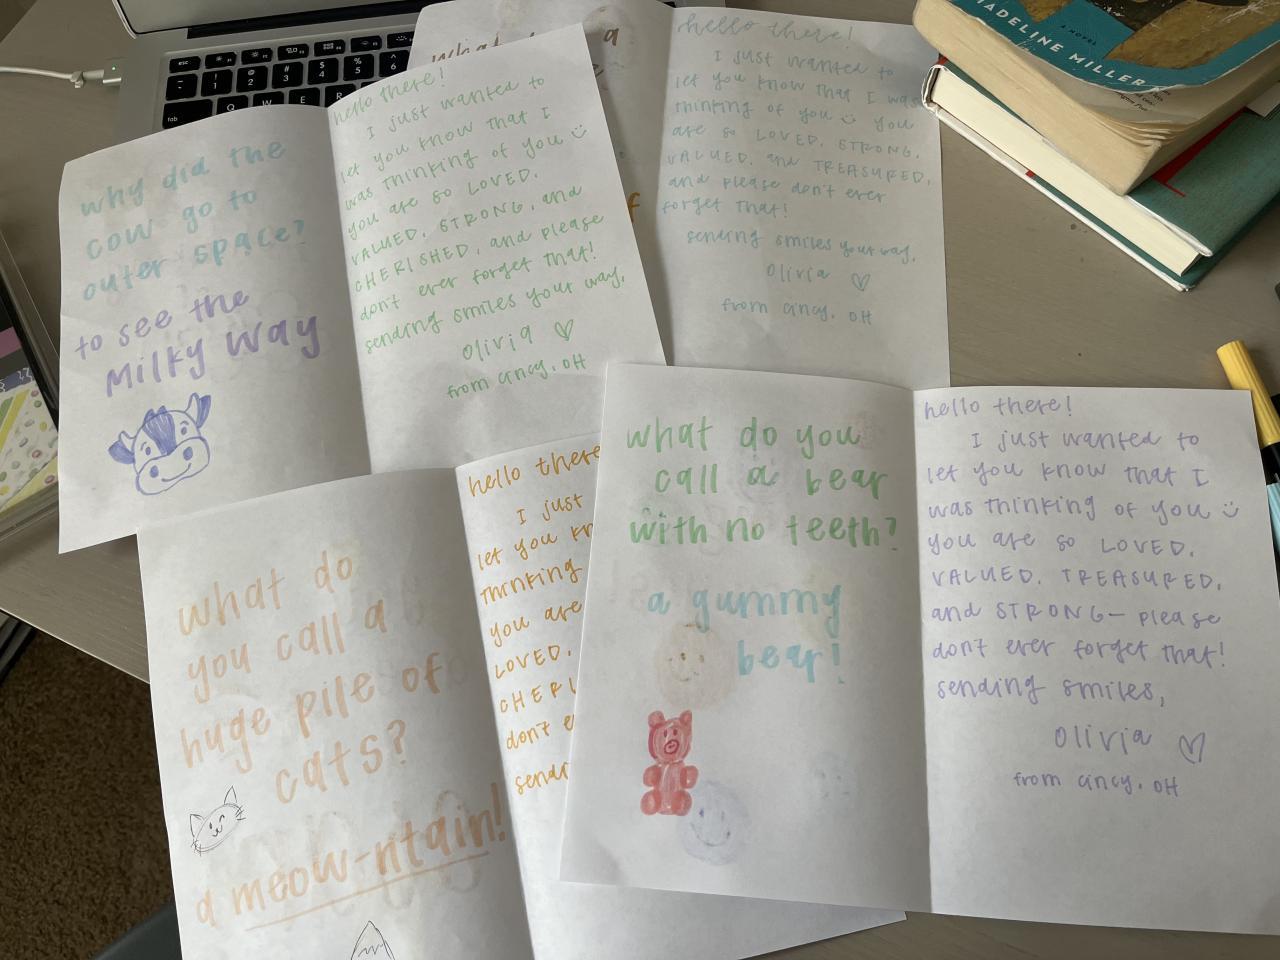 why did the
cow go to
outer space?
to see the
Milky Way
hello there!
I just wanted to
let you know that I
was thinking of you
you are so LOVED,
VALUED, STRONG, and
CHERISHED, and please
don't ever forget that!
sending smiles your way,
Olivia
from cincy, OH
what a
f
hello there!
I just wanted to
let you know that I was
thinking of you you
are so LOVED, STRONG,
VALUED, and TREASURED,
and please don't ever
forget that!
sending smiles your way,
Olivia
from cincy, OH
MADELINE MILLER
A NOVEL
what do
you call a
huge pile of
cats?
a meow-ntain!
hello there
I just
let you kn
thinking
you are
LOVED,
CHERI
don't e
sendi
what do you
call a bear
with no teeth?
a gummy
bear!
hello there!
I just wanted to
let you know that I
was thinking of you
you are so LOVED,
VALUED, TREASURED,
and STRONG— please
don't ever forget that!
sending smiles,
Olivia
from cincy, OH
esc
!
1
@
2
#
3
$
4
%
5
^
6
Q
W
E
R
tab